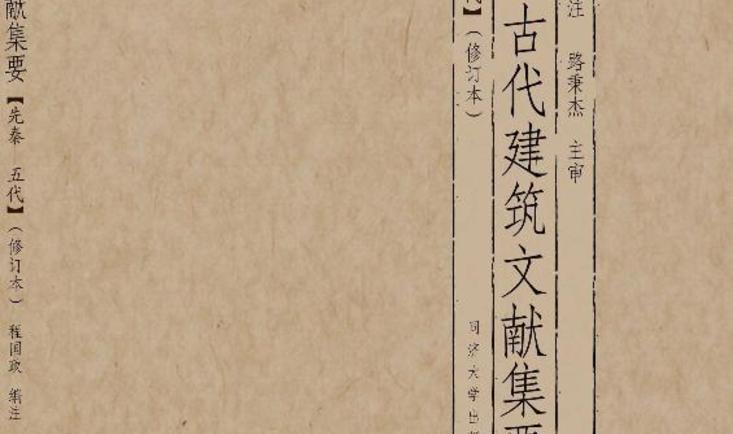 注 路秉杰 主审
古代建筑文献集要
】（修订本）
同济大学出
献集要【先秦 五代】（修订本） 程国政 编注